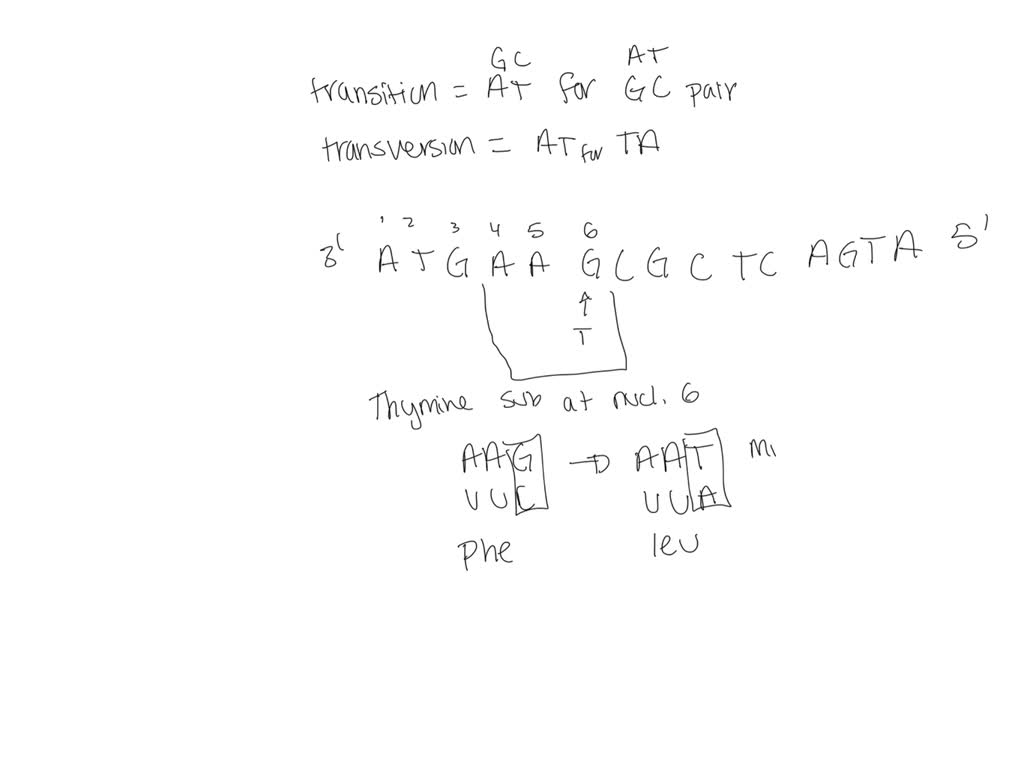 GC AT
transition = AT for GC pair
transversion = AT for TA
1 2 3 4 5 6
3' A T G A A G C G C T C A G T A 5'
↑
T
Thymine sub at nucl. 6
AAG → AAT Mi
UUC UUA
phe leu